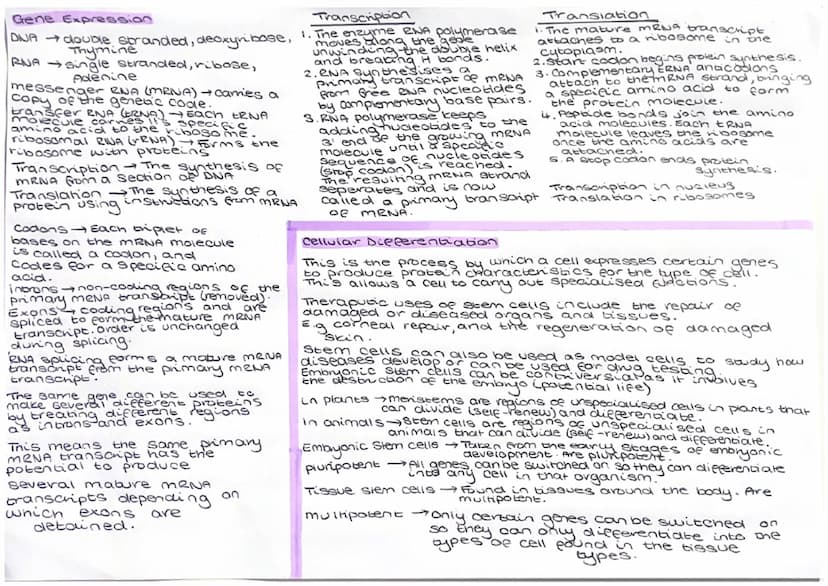 Gene Expression
DNA → double stranded, deoxyribose,
Thymine
RNA → single stranded, ribose,
Adenine
messenger RNA (mRNA) → carries a
copy of the genetic code.
transfer RNA (tRNA) → Each tRNA
molecule carries its specific
amino acid to the ribosome.
ribosomal RNA (rRNA) → forms the
ribosome with proteins
Transcription → The synthesis of
mRNA from a section of DNA
Translation → The synthesis of a
protein using instructions from mRNA
Codons → Each triplet of
bases on the mRNA molecule
is called a codon, and
codes for a specific amino
acid.
introns → non-coding regions of the
primary mRNA transcript (removed).
Exons → coding regions and are
spliced to form the mature mRNA
transcript. Order is unchanged
during splicing.
RNA splicing forms a mature mRNA
transcript from the primary mRNA
transcript.
The same gene can be used to
make several different proteins
by treating different regions
as introns and exons.
This means the same primary
mRNA transcript has the
potential to produce
several mature mRNA
transcripts depending on
which exons are
detained.
Transcription
1. The enzyme RNA polymerase
moves along the gene
unwinding the double helix
and breaking H bonds.
2. RNA synthesises a
primary transcript of mRNA
from free RNA nucleotides
by complementary base pairs.
3. RNA polymerase keeps
adding nucleotides to the
3' end of the growing mRNA
molecule until a specific
sequence of nucleotides
(stop codon) is reached.
The resulting mRNA strand
seperates and is now
called a primary transcript
of mRNA.
Translation
1. The mature mRNA transcript
attaches to a ribosome in the
cytoplasm.
2. Start codon begins protein synthesis.
3. Complementary tRNA anticodons
attach to the mRNA strand, bringing
a specific amino acid to form
the protein molecule.
4. Peptide bonds join the amino
acid molecules. Each tRNA
molecule leaves the ribosome
once the amino acids are
attached.
5. A stop codon ends protein
synthesis.
Transcription in nucleus
Translation in ribosomes
Cellular Differentiation
This is the process by which a cell expresses certain genes
to produce protein characteristics for the type of cell.
This allows a cell to carry out specialised functions.
Theraputic uses of stem cells include the repair of
damaged or diseased organs and tissues.
E.g corneal repair, and the regeneration of damaged
skin.
Stem cells can also be used as model cells to study how
diseases develop or can be used for drug testing.
Embryonic stem cells can be controversial as it involves
the destruction of the embryo (potential life)
In plants → meristems are regions of unspecialised cells in plants that
can divide (self-renew) and differentiate.
In animals → Stem cells are regions of unspecialised cells in
animals that can divide (self-renew) and differentiate.
Embryonic Stem cells → Taken from the early stages of embryonic
development. Are pluripotent.
pluripotent → All genes can be switched on so they can differentiate
into any cell in that organism.
Tissue Stem cells → Found in tissues around the body. Are
multipotent.
multipotent → Only certain genes can be switched on
so they can only differentiate into the
types of cell found in the tissue
types.